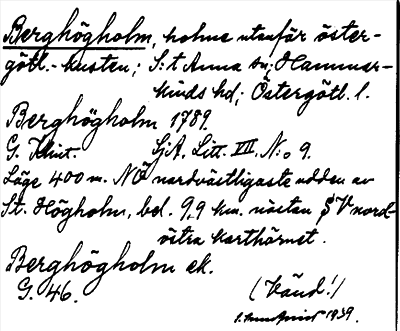 Berghögholm, holme utanför öster-
götl.-kusten; S:t Anna sn; Hammar-
kinds hd; Östergötl. l.
Berghögholm 1789.
G. Klint. SjA. Litt. VIII, N:o 9.
Läge 400 m. NÖ nordvästligaste udden av
St. Högholm, bel. 9,9 km. nästan SV nord-
östra karthörnet.
Berghögholm ek.
G. 46. (Vänd!)
1939.